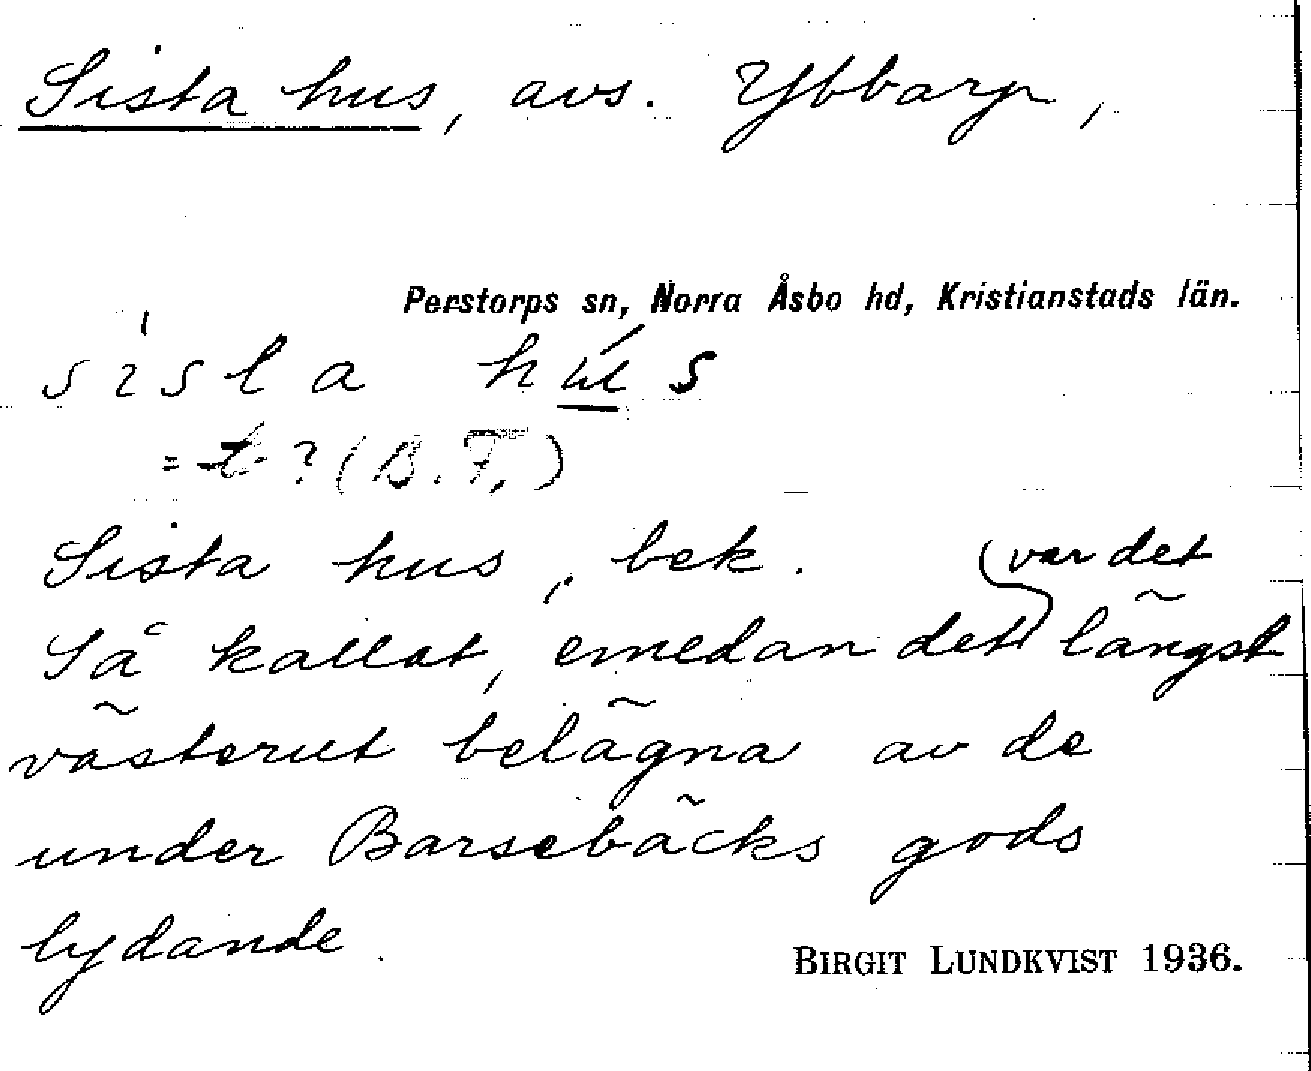 Sista hus, avs. Ybbarp,
Perstorps sn, Norra Åsbo hd, Kristianstads län.
sísla hús
=t? (B.F.)
Sista hus, bek. (var det
Så kallat, emedan det längst
västerut belägna av de
under Barsebäcks gods
lydande.
BIRGIT LUNDKVIST 1936.